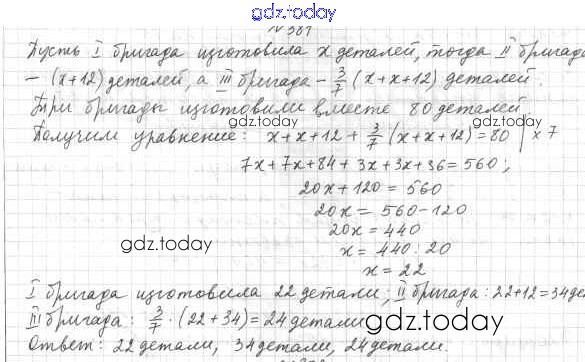 gdz.today
N 381
Пусть I бригада изготовила x деталей, тогда II бригада
– (x+12) деталей, а III бригада – 3/7 (x+x+12) деталей.
Три бригады изготовили вместе 80 деталей
gdz.today gdz.today
Получим уравнение: x+x+12+ 3/7 (x+x+12)=80 | x 7
7x+7x+84+3x+3x+36=560;
20x+120=560
20x=560-120
20x=440
gdz.today
x=440:20
x=22
I бригада изготовила 22 детали; II бригада: 22+12=34де
III бригада: 3/7 · (22+34)=24 детали
gdz.today
Ответ: 22 детали, 34 детали, 24 детали.